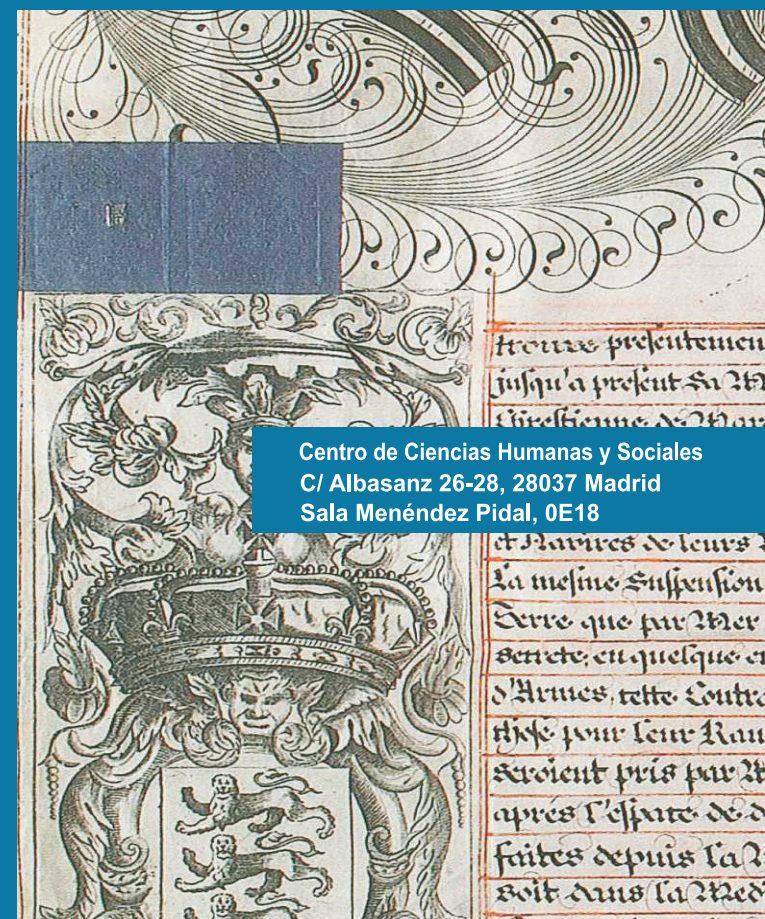 trouve presentemen
jusqu'a present Sa Ma
Chrestienne, de Mar
Centro de Ciencias Humanas y Sociales
C/ Albasanz 26-28, 28037 Madrid
Sala Menéndez Pidal, 0E18
et Navires de leurs
La mesme Suspension
Terre que par Mer
secrete, en quelque en
d'Armes, cette Contre
these pour leur Ran
seroient pris par M
aprés l'espace de d
faites depuis la
soit dans la Med